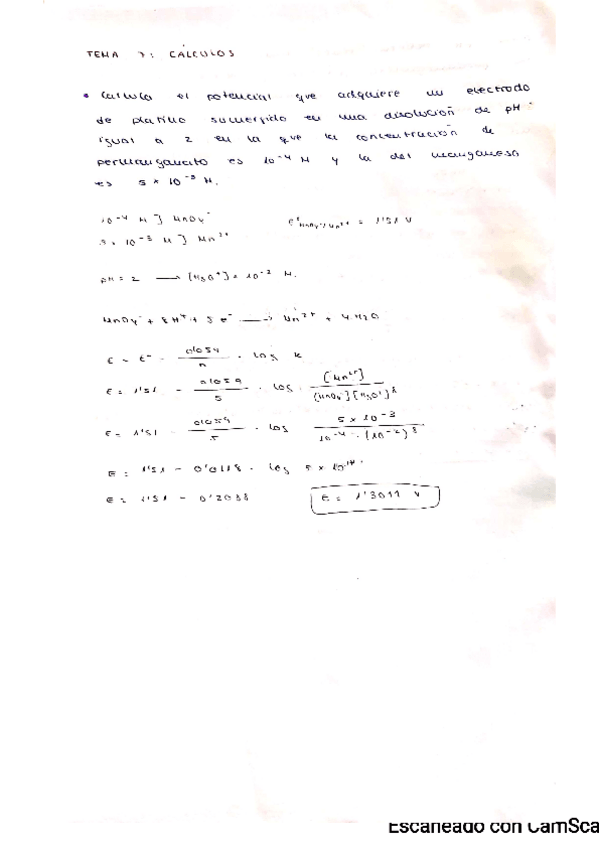 TEMA 7: CÁLCULOS
• Calcula el potencial que adquiere un electrodo
de platino sumergido en una disolución de pH
igual a 2 en la que la concentración de
permanganato es 10⁻⁴ M y la del manganeso
es 5 × 10⁻³ M.
10⁻⁴ M ] MnO₄⁻ E°MnO₄⁻/Mn²⁺ = 1'51 V
5 × 10⁻³ M ] Mn²⁺
pH = 2 → [H₃O⁺] = 10⁻² M.
MnO₄⁻ + 8 H⁺ + 5 e⁻ → Mn²⁺ + 4 H₂O
E = E° - 0'059/n · log k
E = 1'51 - 0'059/5 · log [Mn²⁺]/[MnO₄⁻][H₃O⁺]⁸
E = 1'51 - 0'059/5 · log 5 × 10⁻³/10⁻⁴ · (10⁻²)⁸
E = 1'51 - 0'0118 · log 5 × 10¹⁷
E = 1'51 - 0'2088 E = 1'3011 V
Escaneado con CamSca